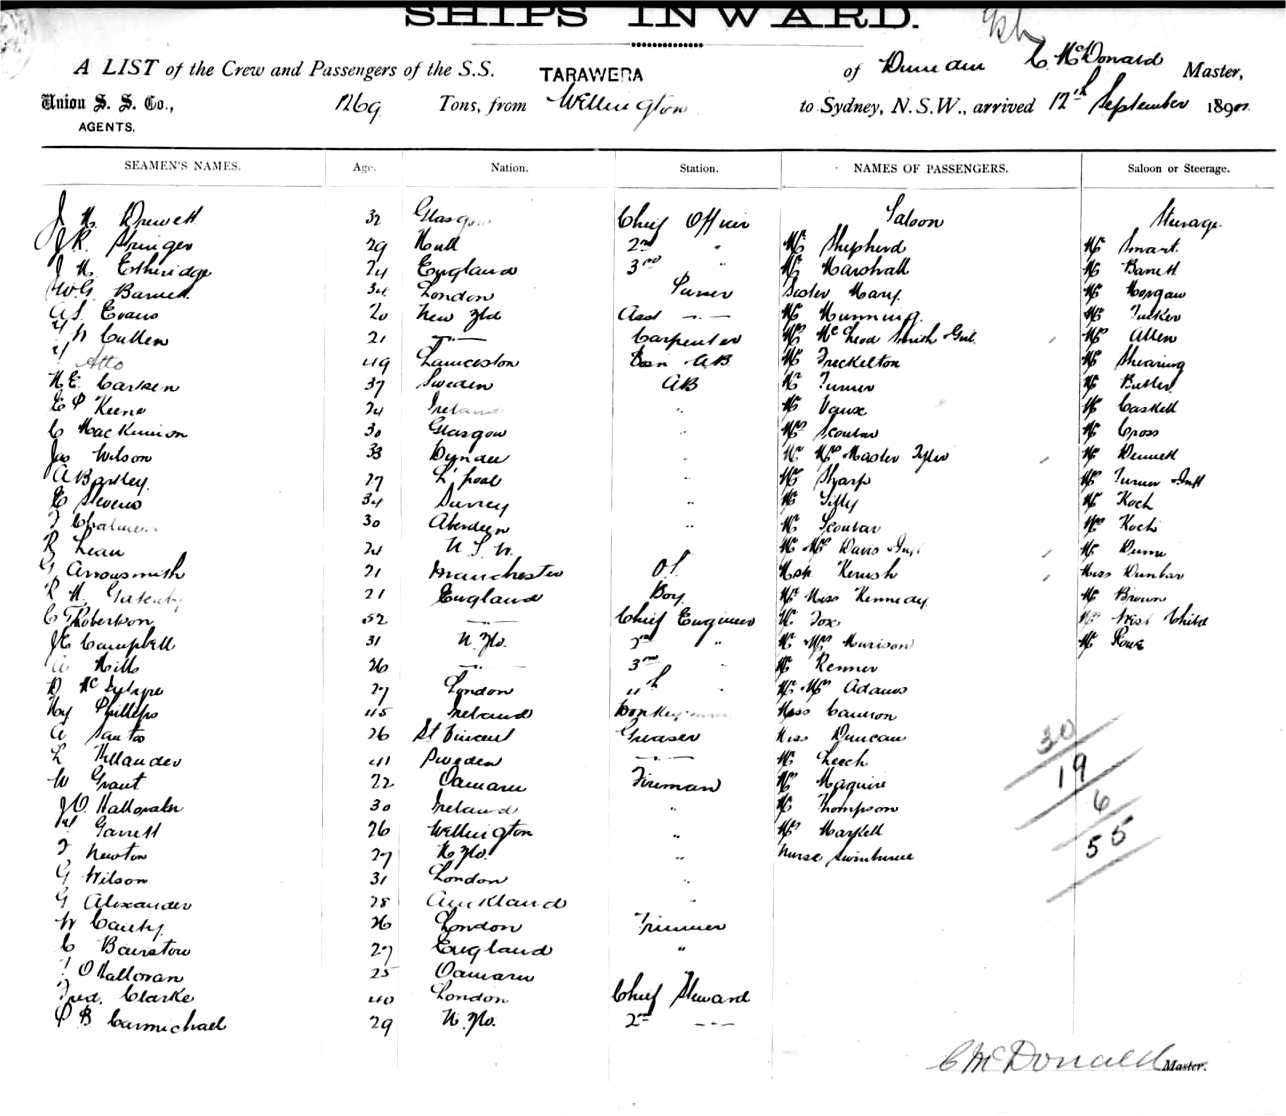 SHIPS INWARD.
A LIST of the Crew and Passengers of the S.S. TARAWERA of Duncan C. McDonard Master,
Union S. S. Co., 1269 Tons, from Wellington to Sydney, N.S.W., arrived 12th September 189
AGENTS.
SEAMEN'S NAMES. Age. Nation. Station. NAMES OF PASSENGERS. Saloon or Steerage.
J H. Drewett 32 Glasgow Chief Officer Saloon Steerage
J R. Springer 29 Hull 2nd " Mr Shepherd Mr Smart.
J H. Etheridge 24 England 3rd " Mr Marshall Mr Barrett
W G. Barnett 34 London Purser Sister Mary. Mr Morgan
A S. Evans 20 New Zld Asst — — Mr Munning. Mr Tucker
W Cullen 21 — Carpenter Mrs McLeod Smith Mrs Allen
Atto 49 Launceston AB Mr Freckelton Mr Shearing
H E. Carlsen 37 Sweden AB Mr Turner Mr Butler
E P Keene 24 Ireland " Mr Vaux Mr Caskell
C MacKinnon 30 Glasgow " Mrs Scoular Mr Cross
Jas Wilson 33 Dundee " Mr Mrs Master Tyler Mr Dennett
A Bartley. 27 L'pool " Mr Sharp Mrs Turner Inft
E Stevens 34 Surrey " Mr Silly Mr Koch
Chalmers 30 Aberdeen " Mr Scoular Mrs Koch
R Lean 24 N. S. W. Mr Mrs Davis Inft Mr Dunn
G Arrowsmith 21 Manchester OS. Kerush Miss Dunbar
R H. Gatenby 21 England Boy Mr Miss Kennedy Mr Brown
C Robertson 52 — Chief Engineer Mr Fox Child
J C Campbell 31 N. Zld. 2nd " Mr Mrs Murison Mr Rowe
A Mills 26 — 3rd " Mr Renner
D McIntyre 27 London 4th " Mr Mrs Adams
Hy Phillips 45 Ireland Donkeyman Miss Cameron
A Santos 26 St Vincent Greaser Miss Duncan
L Hellander 41 Sweden — Mr Leech
W Grant 22 Oamaru Fireman Mrs Maguire
J O. Halloran 30 Ireland " Mr Thompson
W Garrett 26 Wellington " Mrs Maxfell
Newton 27 N. Zld. " Nurse Swinburne
G Wilson 31 London "
G Alexander 28 Auckland "
W Canty. 26 London Trimmer
C Bairstow 27 England "
O'Halloran 25 Oamaru
Fred. Clarke 40 London Chief Steward
P B Carmichael 29 N. Zld. 2nd — —
30
19
6
55
C McDonald Master.